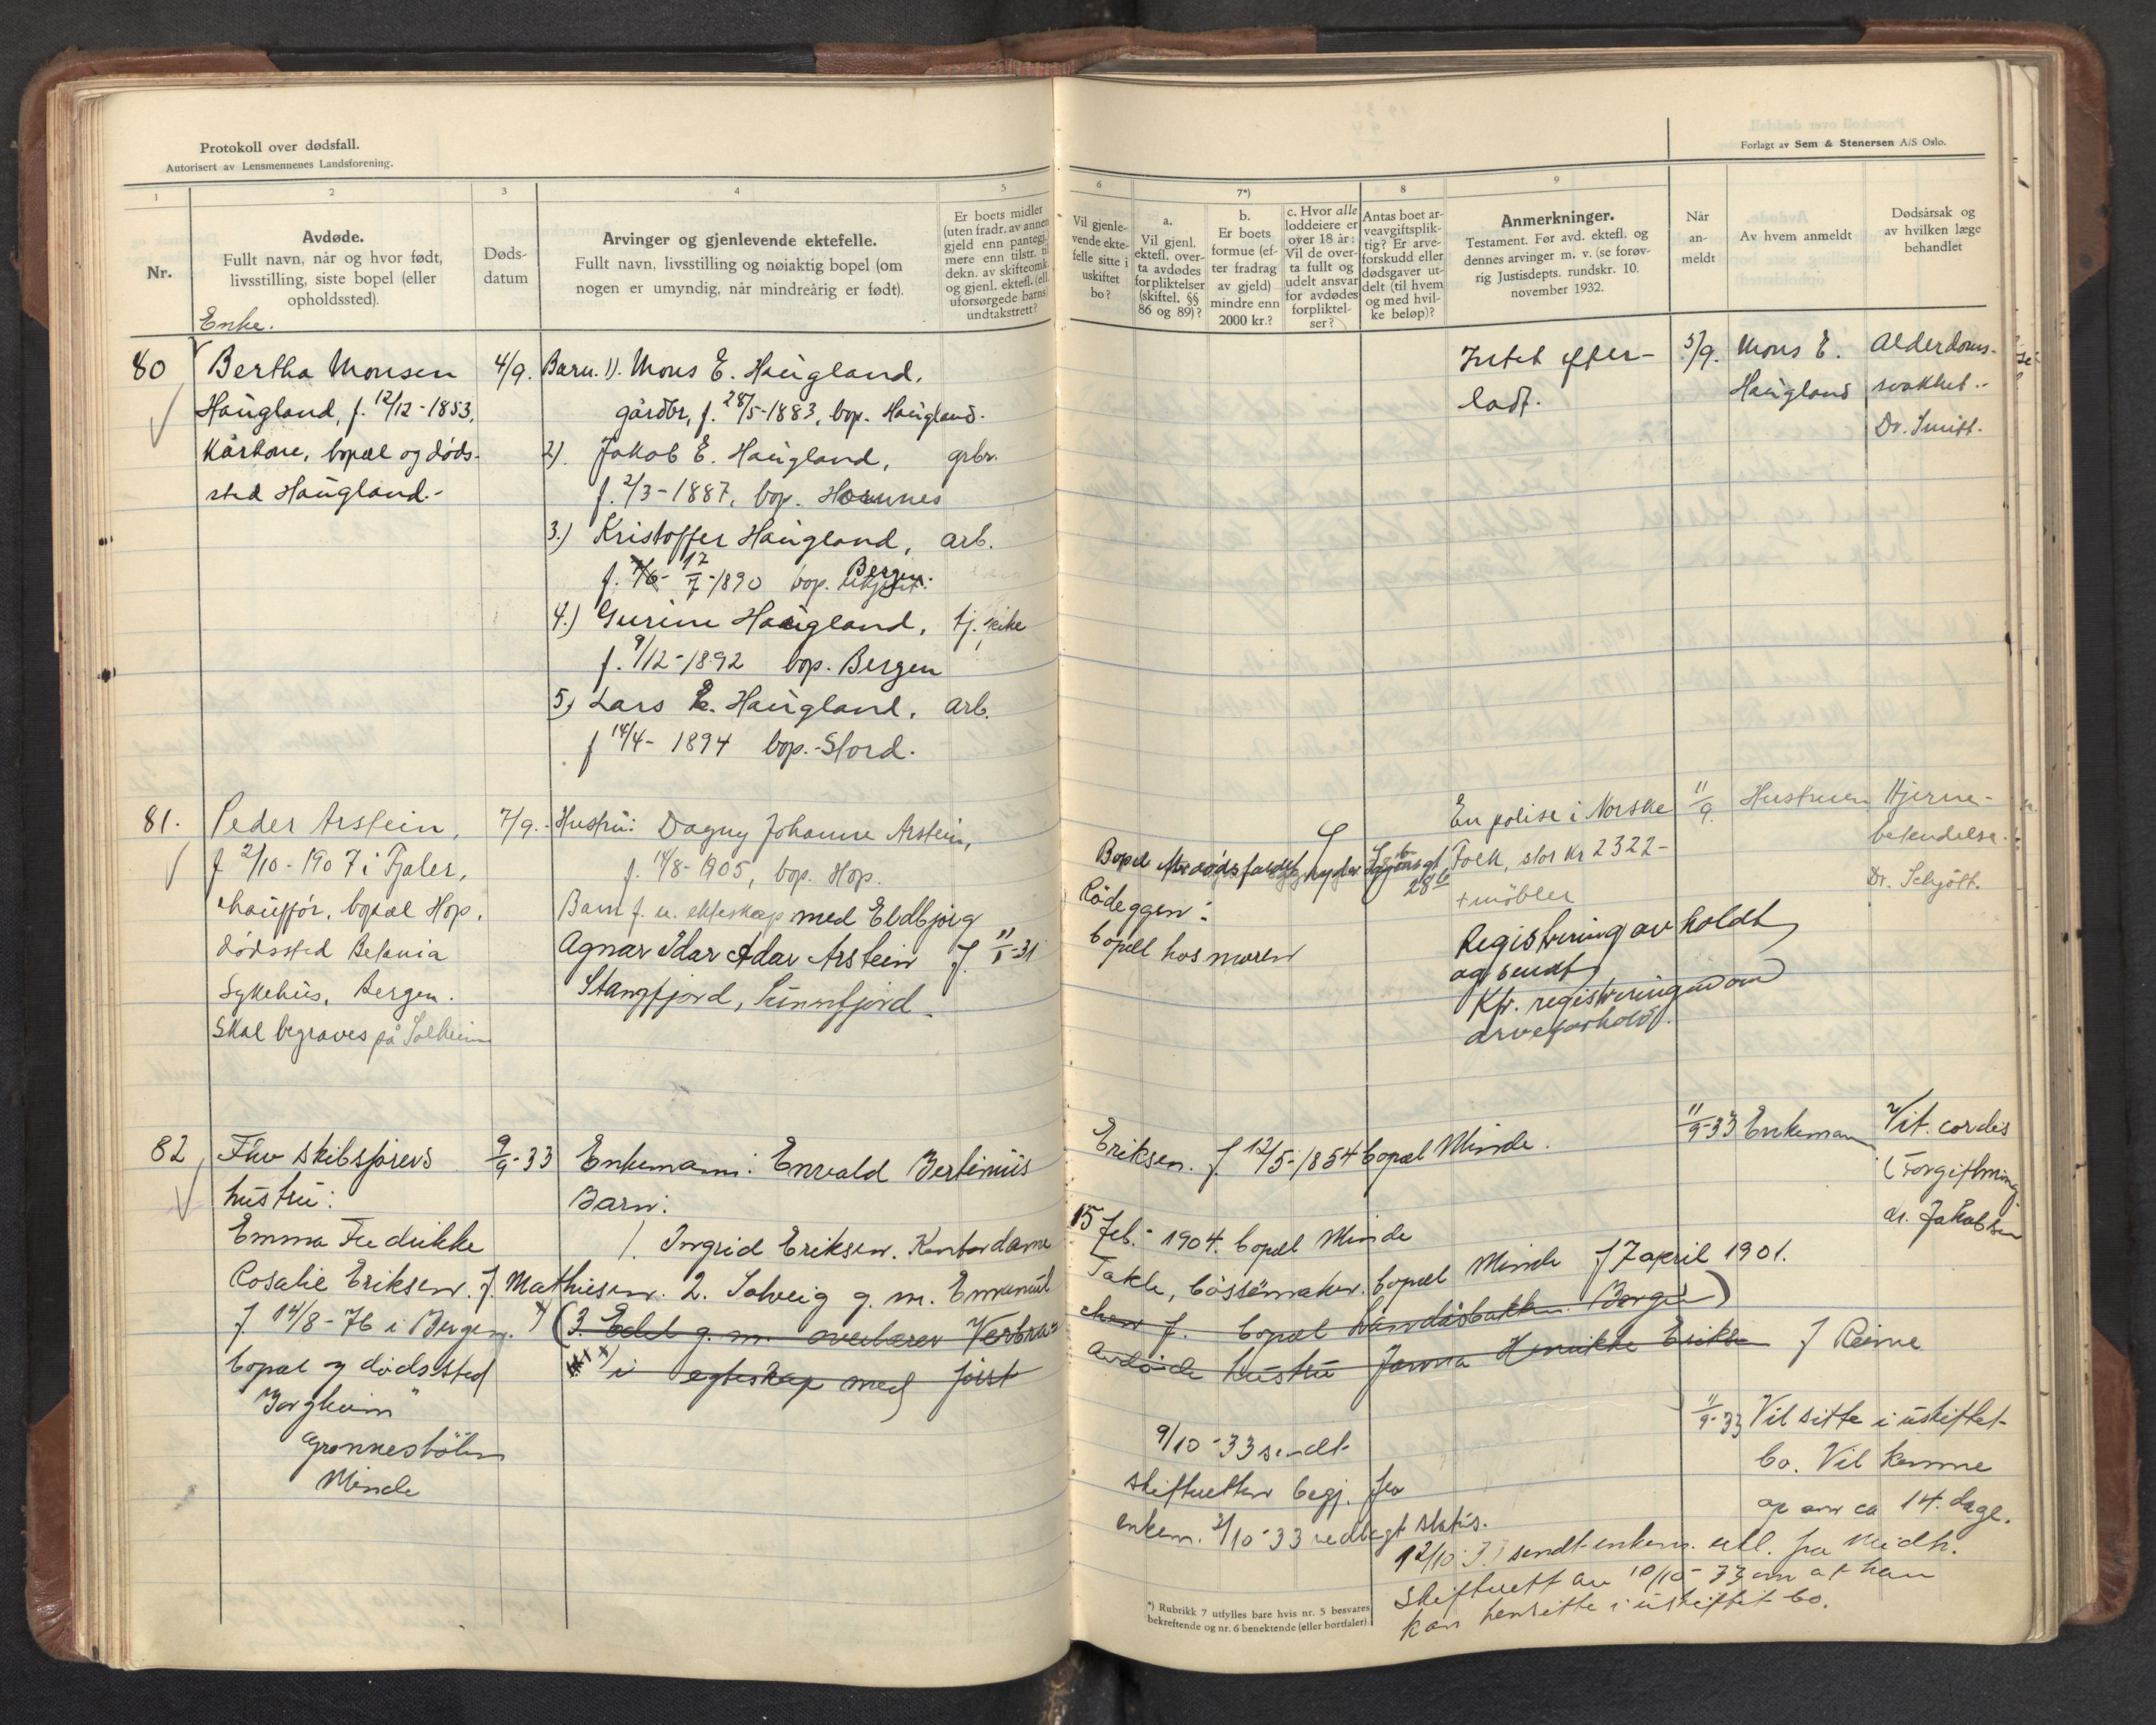 Protokoll over dødsfall.
Autorisert av Lensmennenes Landsforening.
1
2
3
4
5
Nr.
Avdøde.
Fullt navn, når og hvor født,
livsstilling, siste bopel (eller
opholdssted).
Døds-
datum
Arvinger og gjenlevende ektefelle.
Fullt navn, livsstilling og nøiaktig bopel (om
nogen er umyndig, når mindreårig er født).
Er boets midler
(uten fradr. av annen
gjeld enn pantegj.)
mere enn tilstr. til
dekn. av skifteomk.
og gjenl. ektef. (ell.
uforsørgede barns)
undtakstrett?
Enke.
80
Bertha Monsen
Haugland, f. 12/12-1853,
kårkone, bopæl og døds-
sted Haugland.-
4/9.
Barn. 1). Mons E. Haugland,
gårdbr, f. 28/5-1883, bop. Haugland.
2). Jakob E. Haugland, grbr.
f. 2/3-1887, bop.
3.) Kristoffer Haugland, arb.
f. 17/7-1890 bop. Bergen.
4.) Gurine Haugland, tj. pike
f. 9/12-1892 bop. Bergen
5) Lars E. Haugland, arb.
f 14/4- 1894 bop. Stord.
81.
Peder Arstein,
f 2/10-1907 i Fjaler,
chauffør, bopæl Hop.
dødssted Betania
Sykehus, Bergen.
Skal begraves på Solheim
7/9.-
Hustru: Dagny Johanne Arstein,
f. 14/8-1905, bop. Hop.
Barn f. u. ekteskap med Eldbjørg
Agnar Idar Arstein f. 11/1-31
Stangfjord, Sunnfjord.
82
Fhv skibsførers
hustru:
Emma Fredrikke
Rosalie Eriksen. f. Mathiesen.
f 14/8-76 i Bergen.
bopæl og dødssted
"Borgheim"
Grønnestølen
Minde
9/9-33
Enkemann: Envald Bertinius
Barn:
1. Ingrid Eriksen. Kontordame
2. Solveig g. m. Emanuel
x) (3. Edel g. m. overlærer
i egteskap med først
6
7*)
8
9
Forlagt av Sem & Stenersen A/S Oslo.
Vil gjenle-
vende ekte-
felle sitte i
uskiftet
bo?
a.
Vil gjenl.
ektef. over-
ta avdødes
forpliktelser
(skiftel. §§
86 og 89)?
b.
Er boets
formue (ef-
ter fradrag
av gjeld)
mindre enn
2000 kr.?
c. Hvor alle
loddeiere er
over 18 år:
Vil de over-
ta fullt og
udelt ansvar
for avdødes
forpliktel-
ser?
Antas boet ar-
veavgiftsplik-
tig? Er arve-
forskudd eller
dødsgaver ut-
delt (til hvem
og med hvil-
ke beløp)?
Anmerkninger.
Testament. Før avd. ektef. og
dennes arvinger m. v. (se forøv-
rig Justisdepts. rundskr. 10.
november 1932.
Når
an-
meldt
Av hvem anmeldt
Dødsårsak og
av hvilken læge
behandlet
Intet efter-
ladt.
5/9.
Mons E.
Haugland
Alderdoms-
svakhet.-
Dr. Smitt.
Bopel før dødsfaldet
28 b
bopel hos moren
En polise i Norske
Folk, stor kr 2322-
+ møbler
Registrering avholdt
og sendt
Kfr. registreringen om
arveforhold.
11/9.
Hustruen
Hjerne-
betendelse.
Dr. Schjøtt.
Eriksen. f 12/5-1854 bopæl Minde.
15 feb.- 1904. bopæl Minde
Takle, bøssemaker. bopæl Minde f 7 april 1901.
bopæl Landåsbakken. Bergen)
avdøde hustru Henrikke Eriksen f Reime
11/9-33
Enkemann
Vit. cordis
(Forgiftning
dr. Jakobsen
11/9-33 Vil sitte i uskiftet
bo. Vil komme
op om ca 14. dage.
9/10-33 sendt
skifteretten begj. fra
enkem. 2/10-33 vedlagt status.
12/10-33 sendt enkem. utl. fra Midh.
skifterett av 10/10-33 om at han
kan hensitte i uskiftet bo.
*) Rubrikk 7 utfylles bare hvis nr. 5 besvares
bekreftende og nr. 6 benektende (eller bortfaler).